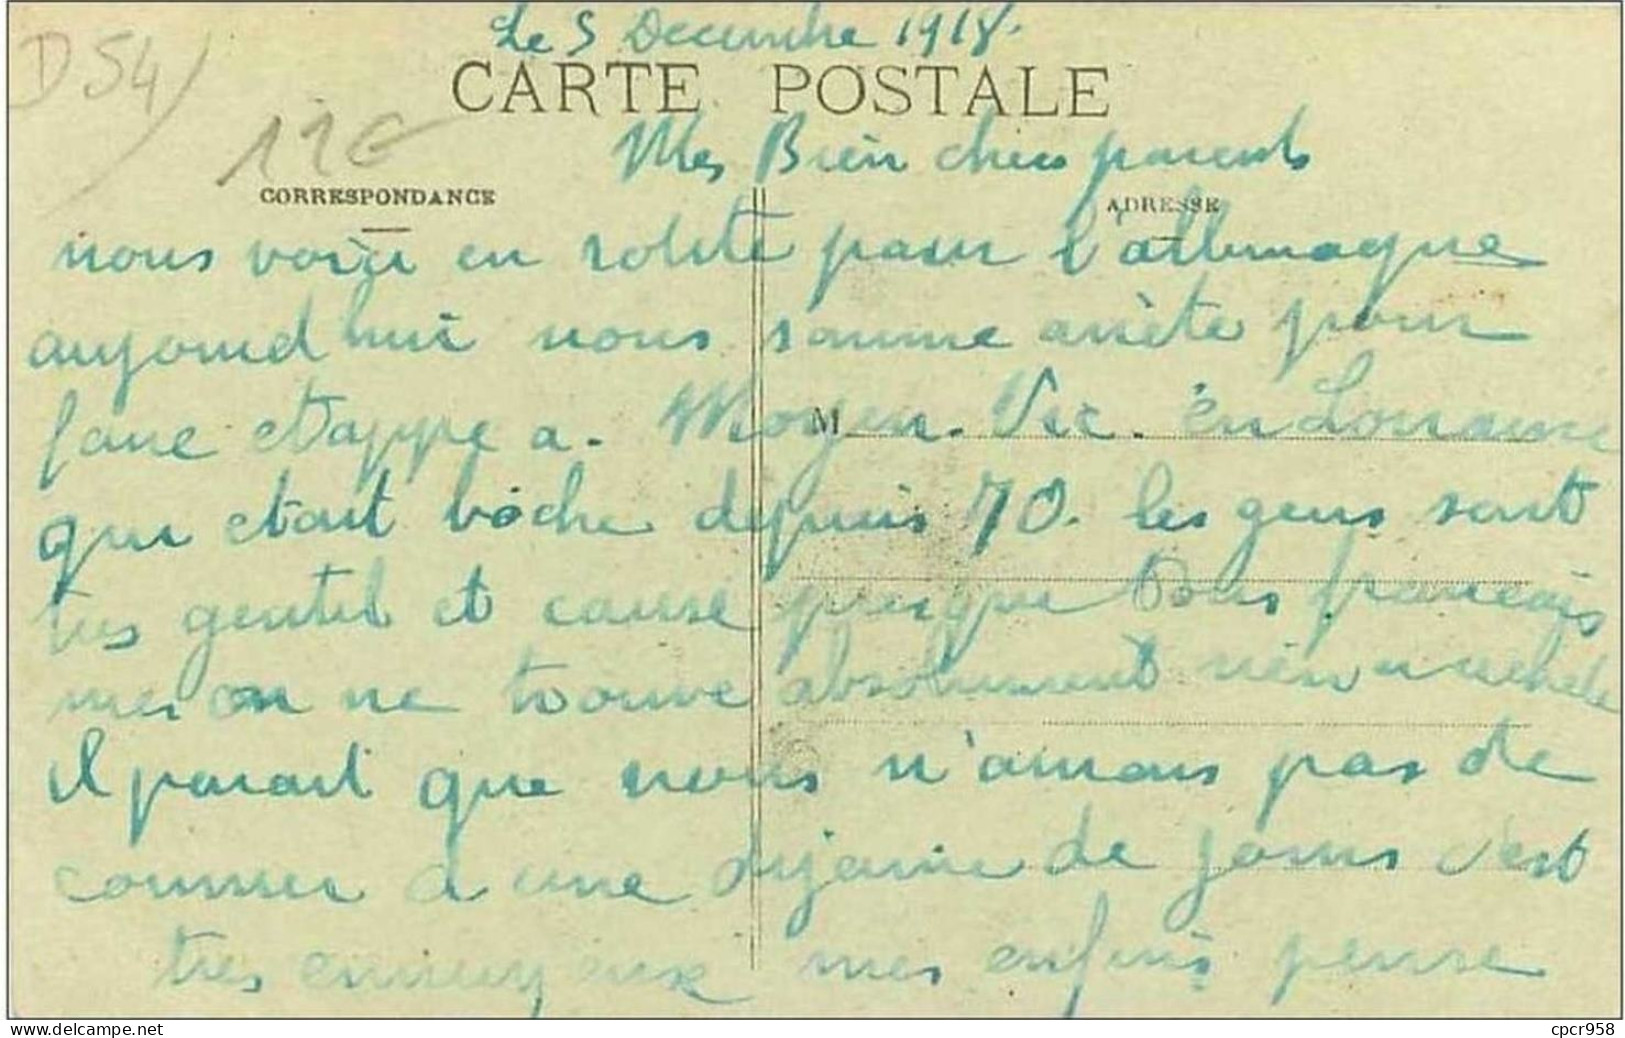 D54
Le 5 Decembre 1918.
CARTE POSTALE
11€
Mes Bien chers parents
CORRESPONDANCE
ADRESSE
nous voici en route pour l'allemagne
aujourd'hui nous somme arrète pour
faire etappe a. Moyen. Vic. en Lorraine
M
qui etait boche depuis 70. les gens sont
tres gentil et cause presque tous français
mes on ne trouve absolument rien a acheter
il parait que nous n'aurons pas de
courrier d une dizaine de jours c'est
tres ennuyeux mes enfin pense
cpcr958